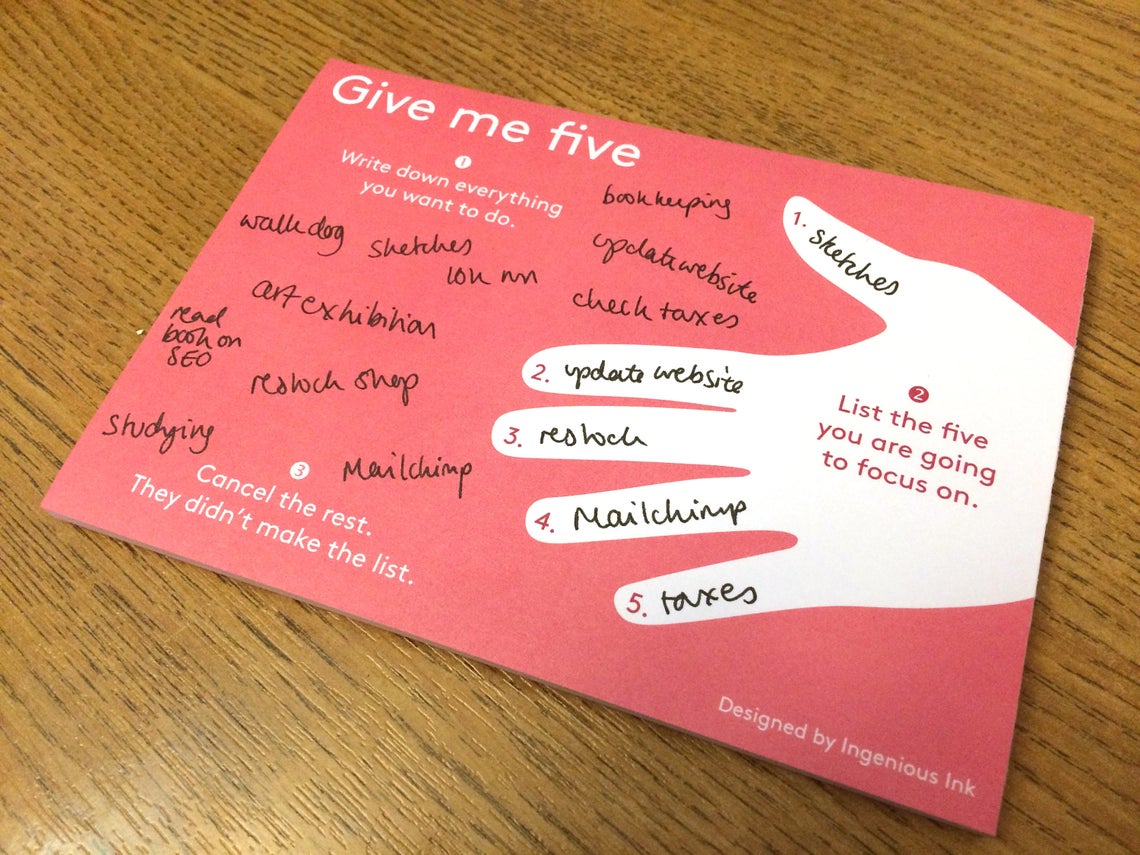 Give me five
1
Write down everything
you want to do.
bookkeeping
walk dog
sketches
10k run
update website
art exhibition
check taxes
read
book on
SEO
restock shop
studying
Mailchimp
3
Cancel the rest.
They didn't make the list.
1. sketches
2. update website
3. restock
4. Mailchimp
5. taxes
2
List the five
you are going
to focus on.
Designed by Ingenious Ink